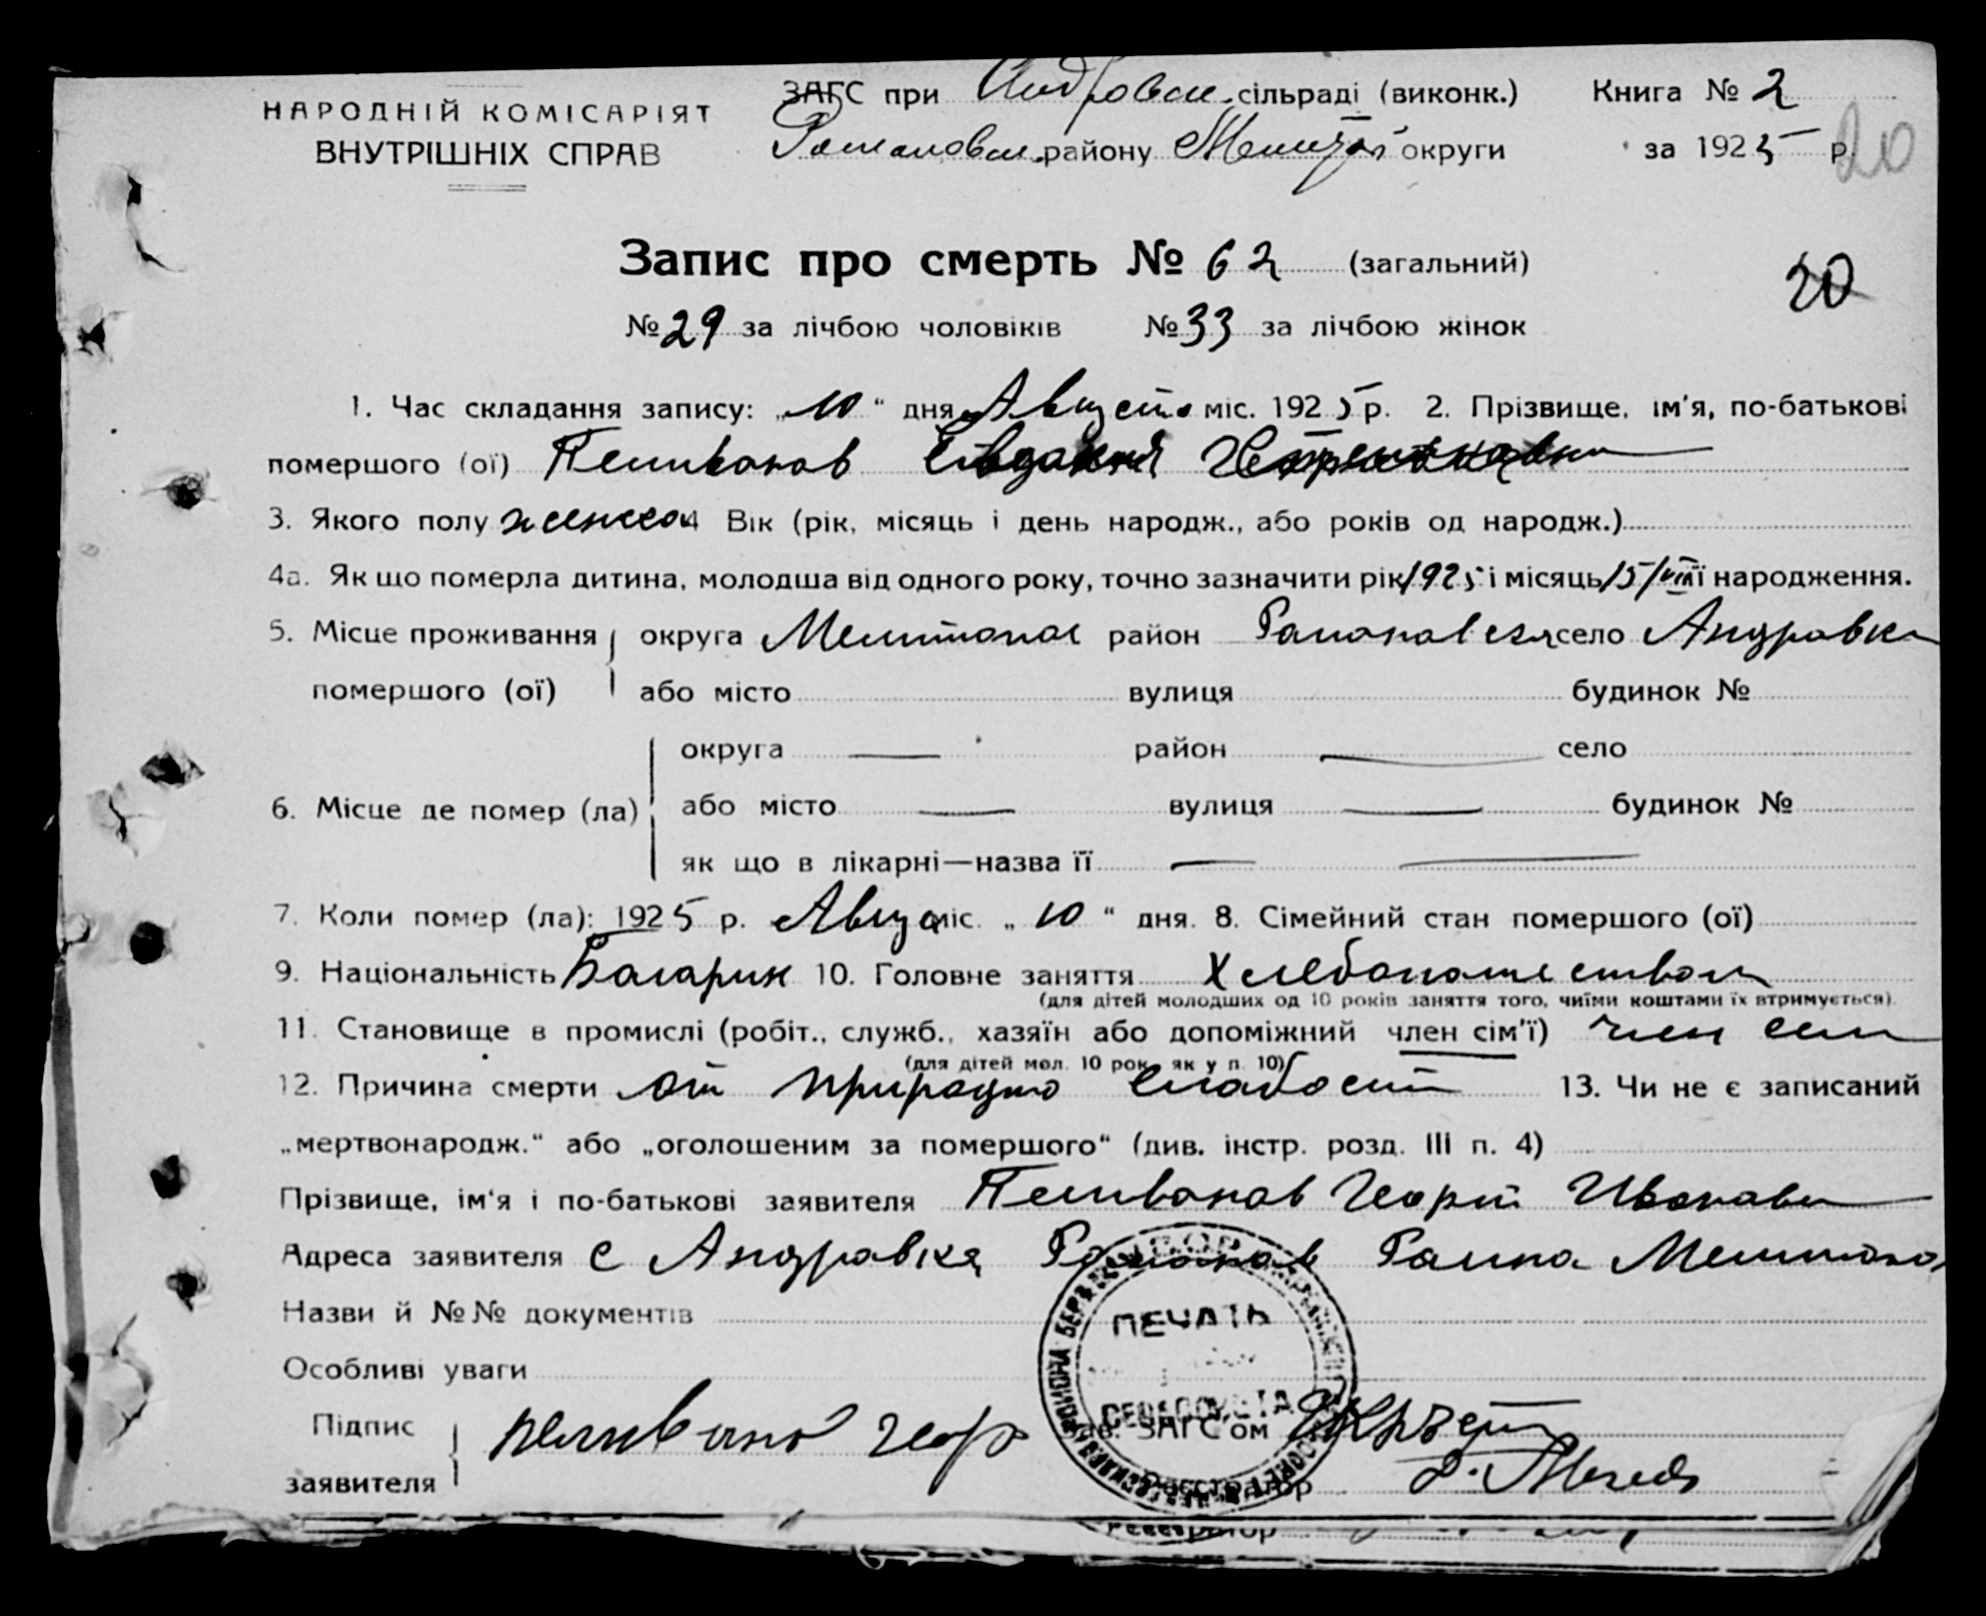 НАРОДНІЙ КОМІСАРІЯТ
ВНУТРІШНІХ СПРАВ
ЗАГС при Андровск. сільраді (виконк.)
Романовск. району округи
Книга № 2
за 1925 р.
20
Запис про смерть № 62 (загальний)
20
№ 29 за лічбою чоловіків № 33 за лічбою жінок
1. Час складання запису: „10“ дня Августа міс. 1925 р. 2. Прізвище, ім'я, по-батькові
помершого (ої) Пеливанов Евдокия
3. Якого полу женской Вік (рік, місяць і день народж., або років од народж.)
4а. Як що померла дитина, молодша від одного року, точно зазначити рік 1925 і місяць 15/VIII її народження.
5. Місце проживання округа Мелитопол район Романовськ село Андровка
помершого (ої) або місто вулиця будинок №
округа — район — село
6. Місце де помер (ла) або місто — вулиця — будинок №
як що в лікарні—назва її — —
7. Коли помер (ла): 1925 р. Авгус міс. „10“ дня. 8. Сімейний стан помершого (ої)
9. Національність Балгарик 10. Головне заняття
(для дітей молодших од 10 років заняття того, чиїми коштами їх втримується)
11. Становище в промислі (робіт., служб., хазяїн або допоміжний член сім'ї) член сем
(для дітей мол. 10 рок. як у п. 10)
12. Причина смерти от природно слабост 13. Чи не є записаний
„мертвонародж.“ або „оголошеним за помершого“ (див. інстр. розд. III п. 4)
Прізвище, ім'я і по-батькові заявителя Пеливанов Георги Иванови
Адреса заявителя с Андровка Романов Раина Мелитопол
Назви й №№ документів
Особливі уваги
ПЕЧАТЬ
Підпис
заявителя
пеливано геор
Зав. ЗАГС'ом
Реєстратор
Реєстратор